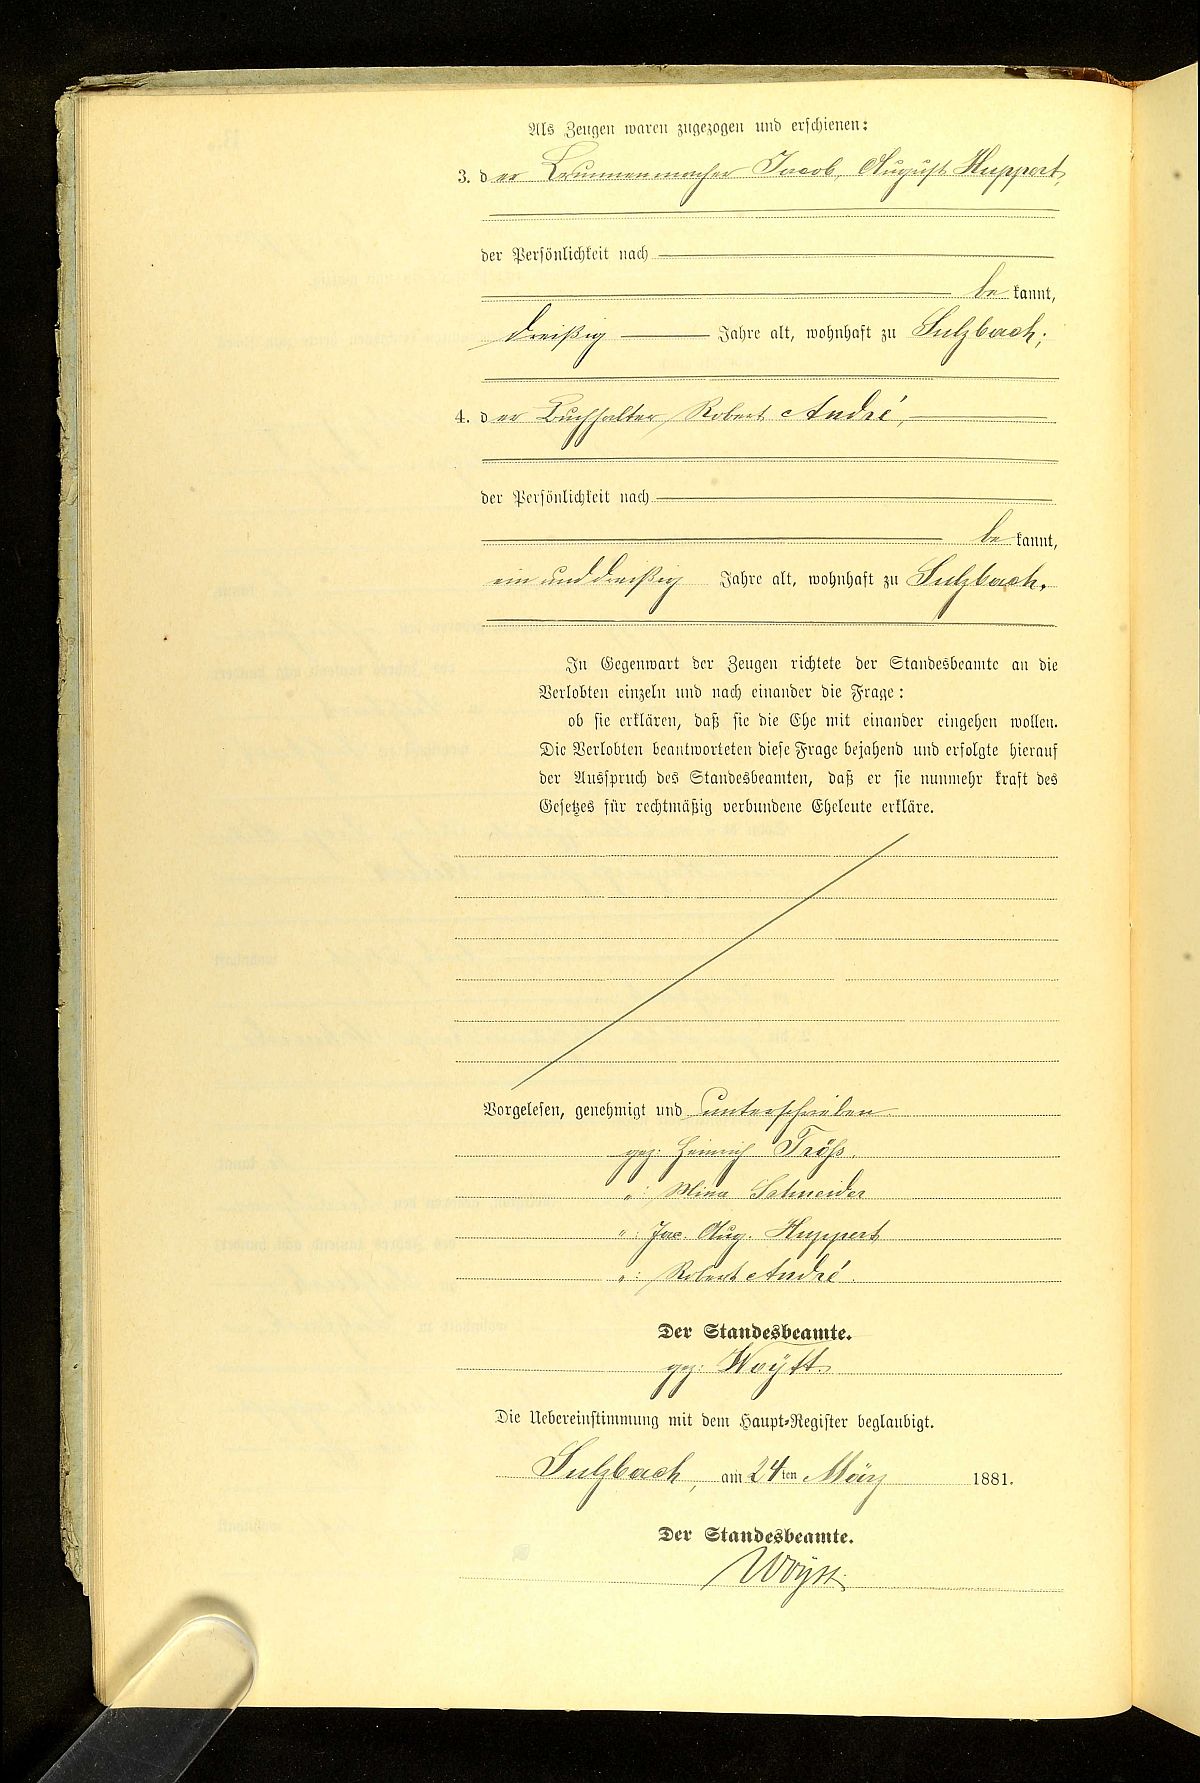 Als Zeugen waren zugezogen und erschienen:
3. der Brunnenmacher Jacob, August Huppert,
der Persönlichkeit nach
be kannt,
dreißig Jahre alt, wohnhaft zu Sulzbach;
4. der Buchhalter Robert André,
der Persönlichkeit nach
be kannt,
ein und dreißig Jahre alt, wohnhaft zu Sulzbach.
In Gegenwart der Zeugen richtete der Standesbeamte an die
Verlobten einzeln und nach einander die Frage:
ob sie erklären, daß sie die Ehe mit einander eingehen wollen.
Die Verlobten beantworteten diese Frage bejahend und erfolgte hierauf
der Ausspruch des Standesbeamten, daß er sie nunmehr kraft des
Gesetzes für rechtmäßig verbundene Eheleute erkläre.
Vorgelesen, genehmigt und unterschrieben
gez: Heinrich Tröß.
": Mina Schneider
": Jac. Aug. Huppert
": Robert André.
Der Standesbeamte.
gez: Woÿtt.
Die Uebereinstimmung mit dem Haupt-Register beglaubigt.
Sulzbach, am 24ten März 1881.
Der Standesbeamte.
Woÿtt.